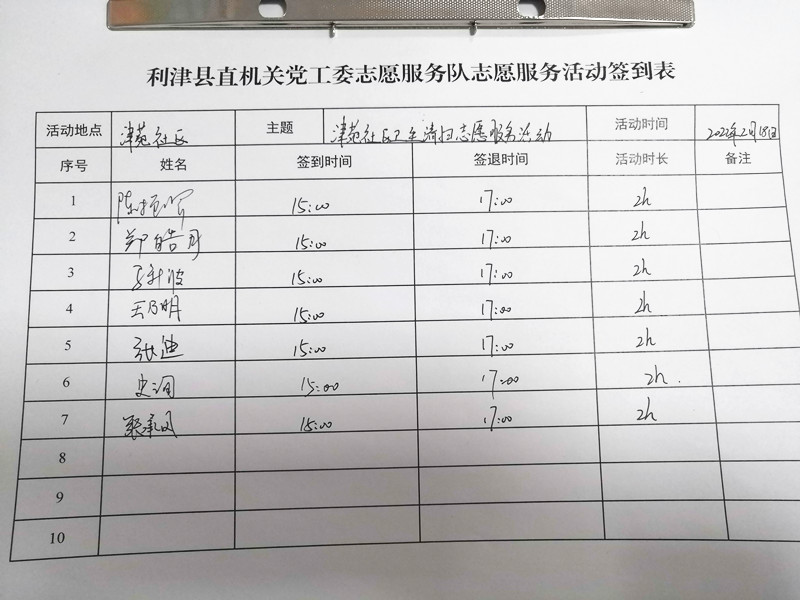 利津县直机关党工委志愿服务队志愿服务活动签到表
活动地点 津苑社区 主题 津苑社区卫生清扫志愿服务活动 活动时间 2022年2月18日
序号 姓名 签到时间 签退时间 活动时长 备注
1 15:00 17:00 2h
2 郑皓月 15:00 17:00 2h
3 15:00 17:00 2h
4 王乃明 15:00 17:00 2h
5 张迪 15:00 17:00 2h
6 史润 15:00 17:00 2h.
7 15:00 17:00 2h
8
9
10